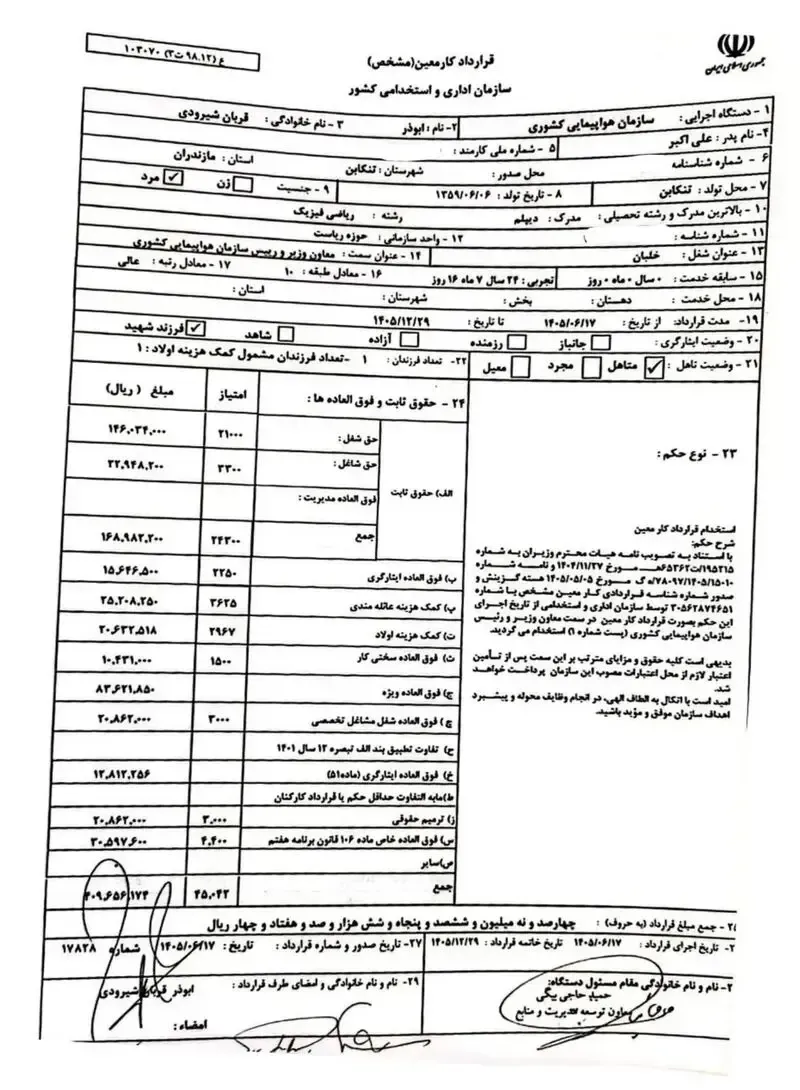 جمهوری اسلامی ایران
ع (۹۸.۱۲ ت۳) ۱۰۳۰۷۰
قرارداد کار معین(مشخص)
سازمان اداری و استخدامی کشور
۱ - دستگاه اجرایی : سازمان هواپیمایی کشوری
۲- نام : ابوذر
۳ - نام خانوادگی : قربان شیرودی
۴- نام پدر : علی اکبر
۵ - شماره ملی کارمند :
۶ - شماره شناسنامه
محل صدور : شهرستان : تنکابن استان : مازندران
۷ - محل تولد : تنکابن
۸ - تاریخ تولد : ۱۳۵۹/۰۶/۰۶
۹ - جنسیت زن مرد
۱۰ - بالاترین مدرک و رشته تحصیلی : مدرک : دیپلم رشته : ریاضی فیزیک
۱۱ - شماره شناسه :
۱۲ - واحد سازمانی : حوزه ریاست
۱۳ - عنوان شغل : خلبان
۱۴ - عنوان سمت : معاون وزیر و رییس سازمان هواپیمایی کشوری
۱۵ - سابقه خدمت : ۰ سال ۰ ماه ۰ روز تجربی : ۲۴ سال ۷ ماه ۱۶ روز
۱۶ - معادل طبقه : ۱۰
۱۷ - معادل رتبه : عالی
۱۸ - محل خدمت : دهستان : بخش : شهرستان : استان :
۱۹- مدت قرارداد: از تاریخ : ۱۴۰۵/۰۶/۱۷ تا تاریخ : ۱۴۰۵/۱۲/۲۹
۲۰ - وضعیت ایثارگری : جانباز رزمنده آزاده شاهد فرزند شهید
۲۱ - وضعیت تاهل : متاهل مجرد معیل
۲۲- تعداد فرزندان : ۱ -تعداد فرزندان مشمول کمک هزینه اولاد : ۱
۲۳ - نوع حکم :
استخدام قرارداد کار معین
شرح حکم:
با استناد به تصویب نامه هیات محترم وزیران به شماره
۱۹۵۳۱۵/ت۶۵۳۶۲هـ مورخ ۱۴۰۴/۱۱/۲۷ و نامه شماره
۷۸۰۹۷/۱۴۰۵/۱۵۰۱۰/گ مورخ ۱۴۰۵/۰۵/۰۵ هسته گزینش و
صدور شماره شناسه قراردادی کار معین مشخص با شماره
۲۰۵۶۲۸۷۴۶۵۱ توسط سازمان اداری و استخدامی از تاریخ اجرای
این حکم بصورت قرارداد کار معین در سمت معاون وزیر و رئیس
سازمان هواپیمایی کشوری (پست شماره ۱) استخدام می گردید.
بدیهی است کلیه حقوق و مزایای مترتب بر این سمت پس از تأمین
اعتبار لازم از محل اعتبارات مصوب این سازمان پرداخت خواهد
شد.
امید است با اتکال به الطاف الهی، در انجام وظایف محوله و پیشبرد
اهداف سازمان موفق و مؤید باشید.
۲۴ - حقوق ثابت و فوق العاده ها : امتیاز مبلغ (ریال)
الف) حقوق ثابت
حق شغل : ۲۱۰۰۰ ۱۴۶,۰۳۴,۰۰۰
حق شاغل : ۳۳۰۰ ۲۲,۹۴۸,۲۰۰
فوق العاده مدیریت :
جمع ۲۴۳۰۰ ۱۶۸,۹۸۲,۲۰۰
ب) فوق العاده ایثارگری ۲۲۵۰ ۱۵,۶۴۶,۵۰۰
پ) کمک هزینه عائله مندی ۳۶۲۵ ۲۵,۲۰۸,۲۵۰
ت) کمک هزینه اولاد ۲۹۶۷ ۲۰,۶۳۲,۵۱۸
ث) فوق العاده سختی کار ۱۵۰۰ ۱۰,۴۳۱,۰۰۰
ج) فوق العاده ویژه ۸۳,۶۲۱,۸۵۰
چ) فوق العاده شغل مشاغل تخصصی ۳۰۰۰ ۲۰,۸۶۲,۰۰۰
ح) تفاوت تطبیق بند الف تبصره ۱۲ سال ۱۴۰۱
خ) فوق العاده ایثارگری (ماده۵۱) ۱۲,۸۱۲,۲۵۶
ط)مابه التفاوت حداقل حکم یا قرارداد کارکنان
ز) ترمیم حقوقی ۳,۰۰۰ ۲۰,۸۶۲,۰۰۰
س) فوق العاده خاص ماده ۱۰۶ قانون برنامه هفتم ۴,۴۰۰ ۳۰,۵۹۷,۶۰۰
ص)سایر
جمع ۴۵,۰۴۲ ۴۰۹,۶۵۶,۱۷۴
- جمع مبلغ قرارداد (به حروف) : چهارصد و نه میلیون و ششصد و پنجاه و شش هزار و صد و هفتاد و چهار ریال
تاریخ اجرای قرارداد : ۱۴۰۵/۰۶/۱۷ تاریخ خاتمه قرارداد : ۱۴۰۵/۱۲/۲۹
۲۷- تاریخ صدور و شماره قرارداد : تاریخ : ۱۴۰۵/۰۶/۱۷ شماره ۱۷۸۲۸
- نام و نام خانوادگی مقام مسئول دستگاه:
حمید حاجی بیگی
معاون توسعه مدیریت و منابع
۲۹- نام و نام خانوادگی و امضای طرف قرارداد : ابوذر قربان شیرودی
امضاء :